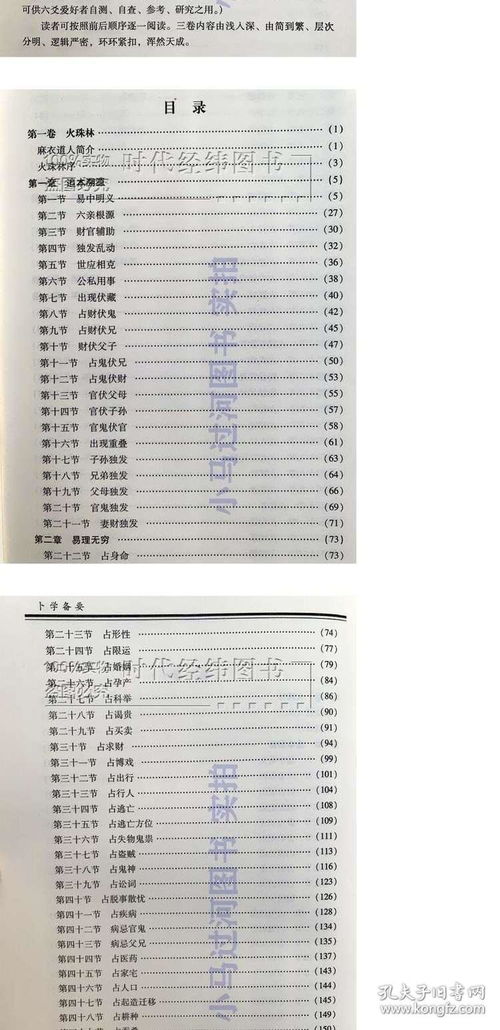 可供六爻爱好者自测、自查、参考、研究之用。）
读者可按照前后顺序逐一阅读。三卷内容由浅入深、由简到繁、层次
分明、逻辑严密，环环紧扣，浑然天成。
目 录
第一卷 火珠林 (1)
麻衣道人简介 (1)
火珠林序 (3)
第一章 (5)
第一节 易中明义 (5)
第二节 六亲根源 (27)
第三节 财官辅助 (30)
第四节 独发乱动 (32)
第五节 世应相克 (36)
第六节 公私用事 (38)
第七节 出现伏藏 (40)
第八节 占财伏鬼 (42)
第九节 占财伏兄 (45)
第十节 财伏父子 (47)
第十一节 占鬼伏兄 (50)
第十二节 占鬼伏财 (53)
第十三节 官伏父母 (55)
第十四节 官伏子孙 (57)
第十五节 官鬼伏官 (58)
第十六节 出现重叠 (61)
第十七节 子孙独发 (63)
第十八节 兄弟独发 (64)
第十九节 父母独发 (66)
第二十节 官鬼独发 (69)
第二十一节 妻财独发 (71)
第二章 易理无穷 (73)
第二十二节 占身命 (73)
100%实物 时代经纬图书
盗图必究
小马过河图书 实拍
卜学备要
第二十三节 占形性 (74)
第二十四节 占限运 (77)
第二十五节 占婚姻 (79)
第二十六节 占孕产 (84)
第二十七节 占科举 (86)
第二十八节 占谒贵 (90)
第二十九节 占买卖 (91)
第三十节 占求财 (94)
第三十一节 占博戏 (99)
第三十二节 占出行 (101)
第三十三节 占行人 (104)
第三十四节 占逃亡 (108)
第三十五节 占逃亡方位 (109)
第三十六节 占失物鬼祟 (111)
第三十七节 占盗贼 (113)
第三十八节 占鬼神 (116)
第三十九节 占讼词 (123)
第四十节 占脱事散忧 (126)
第四十一节 占疾病 (128)
第四十二节 病忌官鬼 (134)
第四十三节 病忌父兄 (135)
第四十四节 占医药 (137)
第四十五节 占家宅 (143)
第四十六节 占人口 (144)
第四十七节 占起造迁移 (145)
第四十八节 占耕种 (149)
100%实物 时代经纬图书
盗图必究
小马过河图书 实拍
孔夫子旧书网
www.kongfz.com